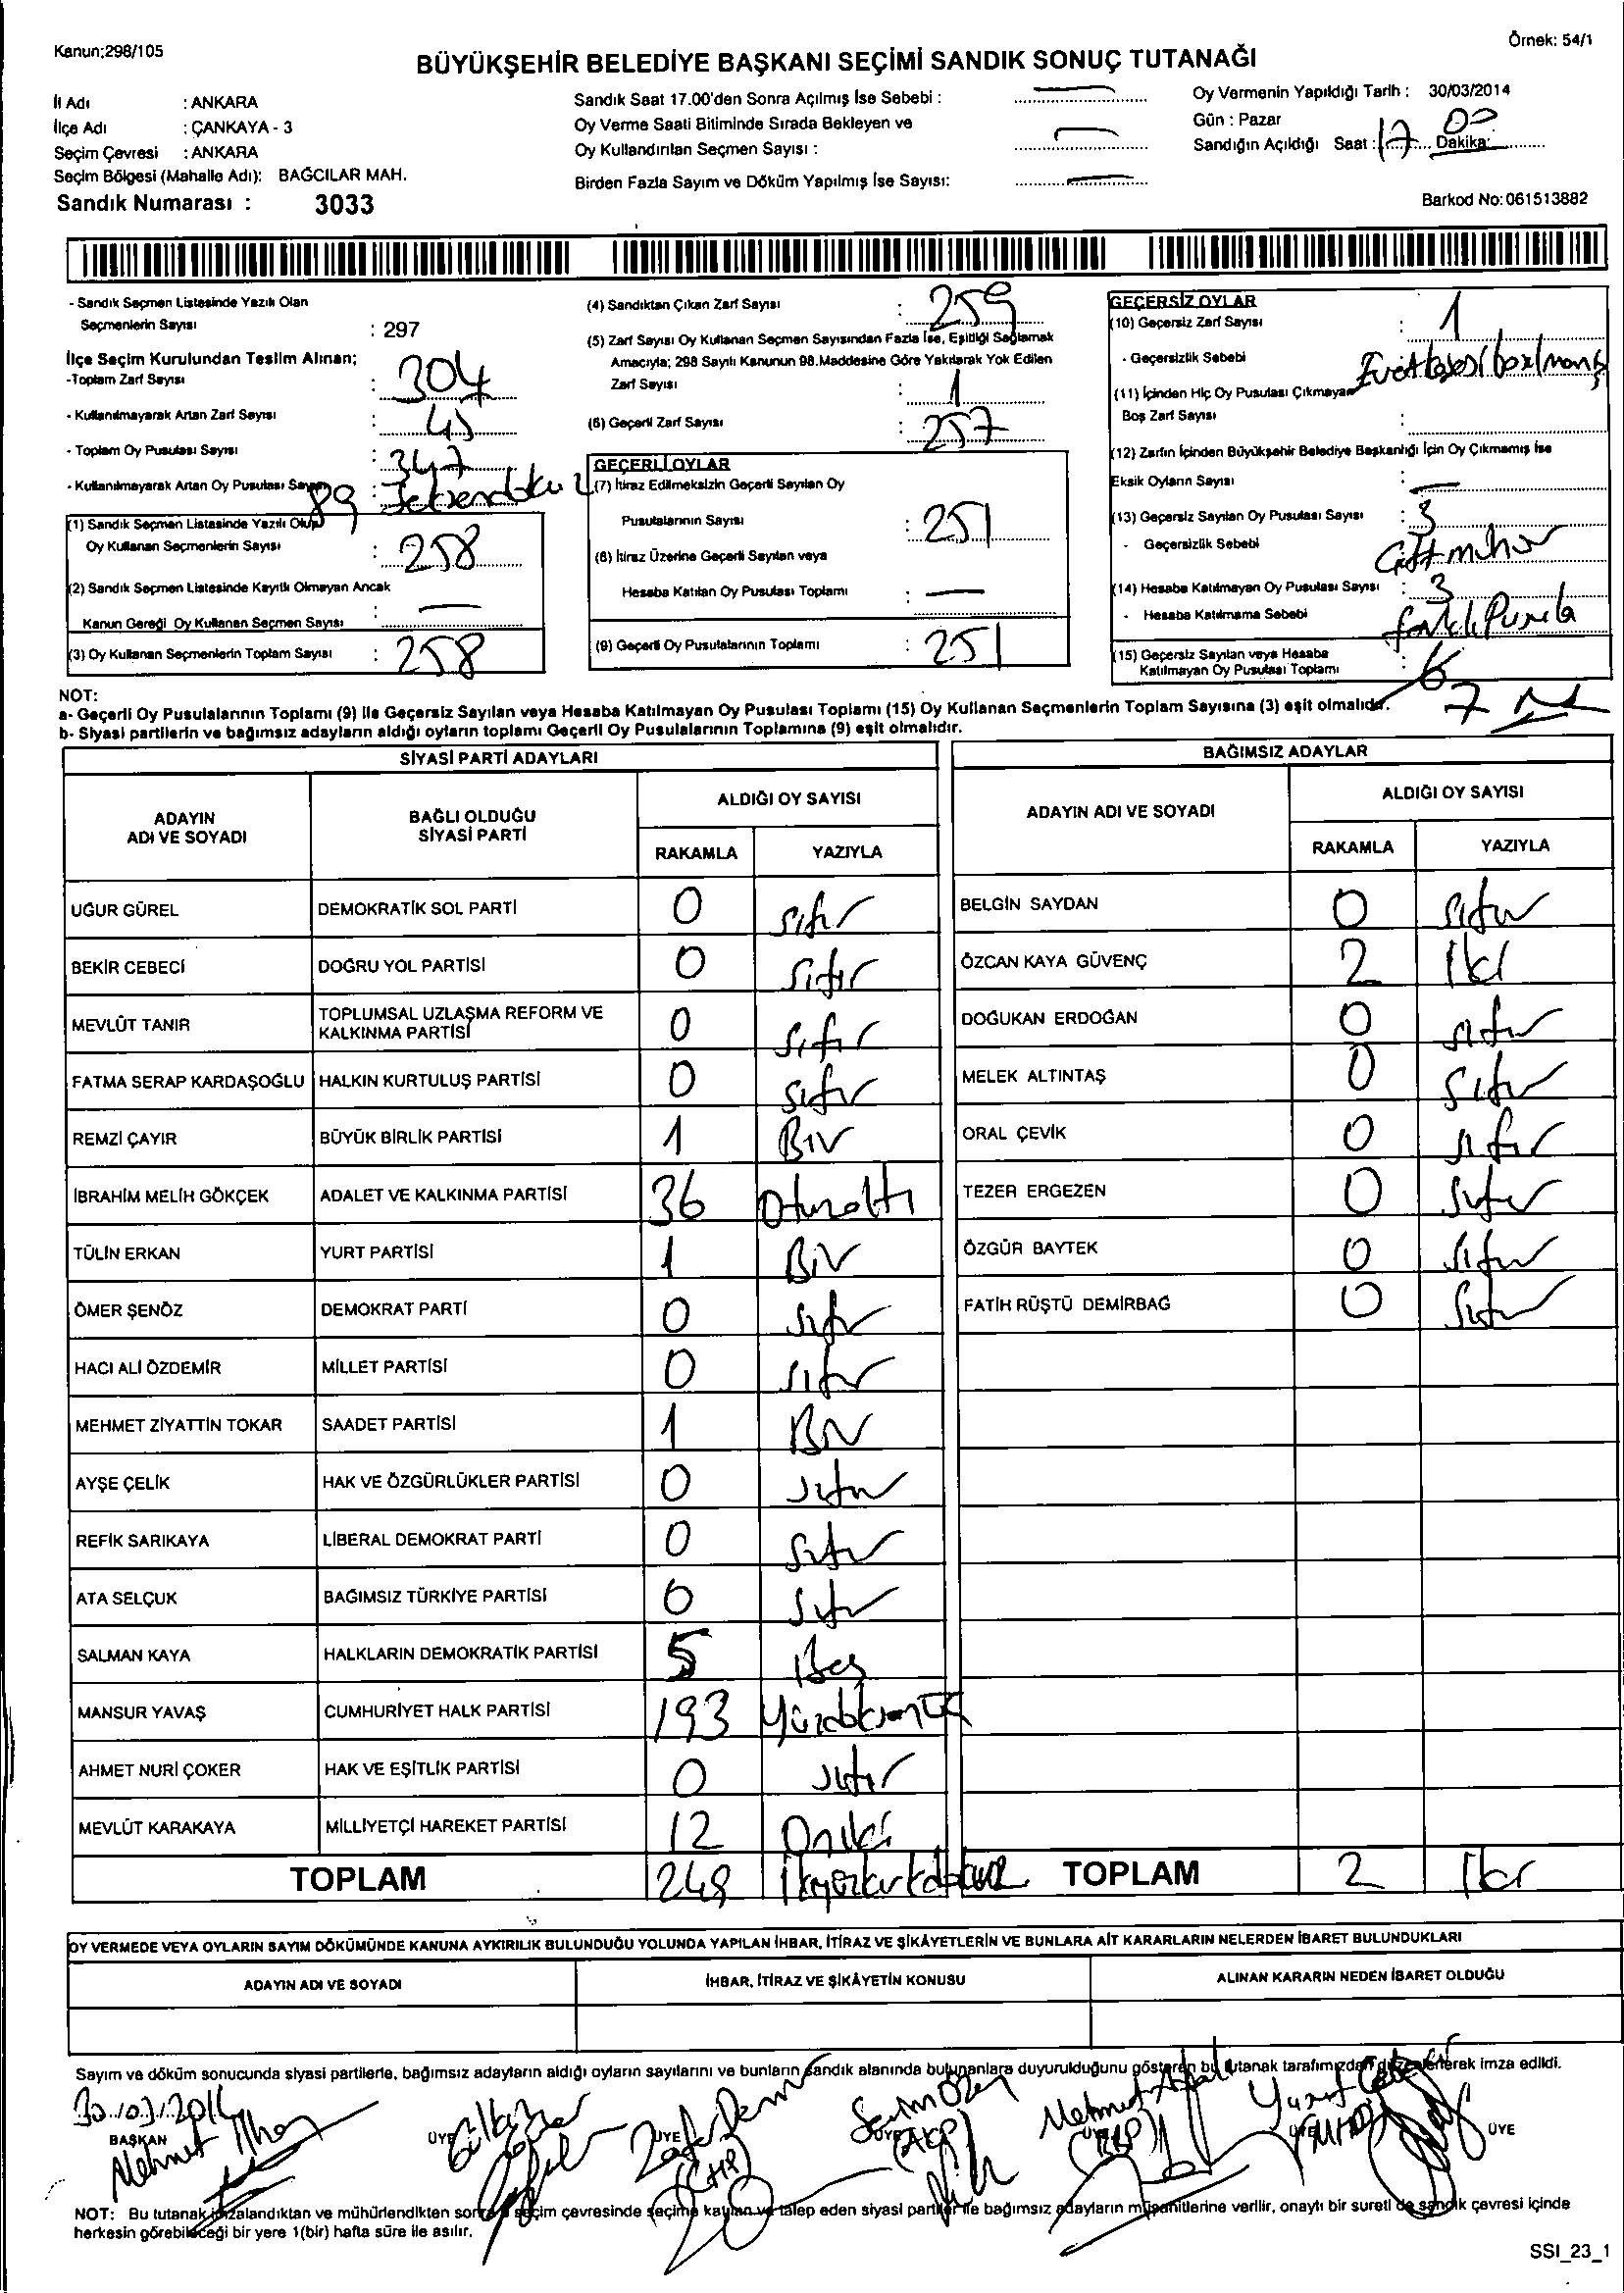 Kanun;298/105
Örnek: 54/1
BÜYÜKŞEHİR BELEDİYE BAŞKANI SEÇİMİ SANDIK SONUÇ TUTANAĞI
İl Adı : ANKARA
İlçe Adı : ÇANKAYA - 3
Seçim Çevresi : ANKARA
Seçim Bölgesi (Mahalle Adı): BAĞCILAR MAH.
Sandık Numarası : 3033
Sandık Saat 17.00'den Sonra Açılmış İse Sebebi :
Oy Verme Saati Bitiminde Sırada Bekleyen ve
Oy Kullandırılan Seçmen Sayısı :
Birden Fazla Sayım ve Döküm Yapılmış İse Sayısı:
Oy Vermenin Yapıldığı Tarih : 30/03/2014
Gün : Pazar
Sandığın Açıldığı Saat : 17 Dakika: 00
Barkod No: 061513882
- Sandık Seçmen Listesinde Yazılı Olan
Seçmenlerin Sayısı : 297
İlçe Seçim Kurulundan Teslim Alınan;
-Toplam Zarf Sayısı : 304
- Kullanılmayarak Artan Zarf Sayısı : 45
- Toplam Oy Pusulası Sayısı : 347
- Kullanılmayarak Artan Oy Pusulası Sayısı : 89 Seksendokuz
(1) Sandık Seçmen Listesinde Yazılı Olup
Oy Kullanan Seçmenlerin Sayısı : 258
(2) Sandık Seçmen Listesinde Kayıtlı Olmayan Ancak
Kanun Gereği Oy Kullanan Seçmen Sayısı : —
(3) Oy Kullanan Seçmenlerin Toplam Sayısı : 258
(4) Sandıktan Çıkan Zarf Sayısı : 259
(5) Zarf Sayısı Oy Kullanan Seçmen Sayısından Fazla İse, Eşitliği Sağlamak
Amacıyla; 298 Sayılı Kanunun 98.Maddesine Göre Yakılarak Yok Edilen
Zarf Sayısı : 1
(6) Geçerli Zarf Sayısı : 257
GEÇERLİ OYLAR
(7) İtiraz Edilmeksizin Geçerli Sayılan Oy
Pusulalarının Sayısı : 251
(8) İtiraz Üzerine Geçerli Sayılan veya
Hesaba Katılan Oy Pusulası Toplamı : —
(9) Geçerli Oy Pusulalarının Toplamı : 251
GEÇERSİZ OYLAR
(10) Geçersiz Zarf Sayısı : 1
- Geçersizlik Sebebi
(11) İçinden Hiç Oy Pusulası Çıkmayan
Boş Zarf Sayısı :
(12) Zarfın İçinden Büyükşehir Belediye Başkanlığı İçin Oy Çıkmamış İse
Eksik Oyların Sayısı : —
(13) Geçersiz Sayılan Oy Pusulası Sayısı : 3
- Geçersizlik Sebebi Çift mühür
(14) Hesaba Katılmayan Oy Pusulası Sayısı : 3
- Hesaba Katılmama Sebebi farklı Pusula
(15) Geçersiz Sayılan veya Hesaba
Katılmayan Oy Pusulası Toplamı : 6
7
NOT:
a- Geçerli Oy Pusulalarının Toplamı (9) ile Geçersiz Sayılan veya Hesaba Katılmayan Oy Pusulası Toplamı (15) Oy Kullanan Seçmenlerin Toplam Sayısına (3) eşit olmalıdır.
b- Siyasi partilerin ve bağımsız adayların aldığı oyların toplamı Geçerli Oy Pusulalarının Toplamına (9) eşit olmalıdır.
SİYASİ PARTİ ADAYLARI
ADAYIN ADI VE SOYADI BAĞLI OLDUĞU SİYASİ PARTİ ALDIĞI OY SAYISI
RAKAMLA YAZIYLA
UĞUR GÜREL DEMOKRATİK SOL PARTİ 0 sıfır
BEKİR CEBECİ DOĞRU YOL PARTİSİ 0 sıfır
MEVLÜT TANIR TOPLUMSAL UZLAŞMA REFORM VE KALKINMA PARTİSİ 0 sıfır
FATMA SERAP KARDAŞOĞLU HALKIN KURTULUŞ PARTİSİ 0 sıfır
REMZİ ÇAYIR BÜYÜK BİRLİK PARTİSİ 1 Bir
İBRAHİM MELİH GÖKÇEK ADALET VE KALKINMA PARTİSİ 36 Otuzaltı
TÜLİN ERKAN YURT PARTİSİ 1 Bir
ÖMER ŞENÖZ DEMOKRAT PARTİ 0 sıfır
HACI ALİ ÖZDEMİR MİLLET PARTİSİ 0 sıfır
MEHMET ZİYATTİN TOKAR SAADET PARTİSİ 1 Bir
AYŞE ÇELİK HAK VE ÖZGÜRLÜKLER PARTİSİ 0 sıfır
REFİK SARIKAYA LİBERAL DEMOKRAT PARTİ 0 sıfır
ATA SELÇUK BAĞIMSIZ TÜRKİYE PARTİSİ 0 sıfır
SALMAN KAYA HALKLARIN DEMOKRATİK PARTİSİ 5 Beş
MANSUR YAVAŞ CUMHURİYET HALK PARTİSİ 193 Yüzdoksanüç
AHMET NURİ ÇOKER HAK VE EŞİTLİK PARTİSİ 0 sıfır
MEVLÜT KARAKAYA MİLLİYETÇİ HAREKET PARTİSİ 12 Oniki
TOPLAM 249 İkiyüzkırkdokuz
BAĞIMSIZ ADAYLAR
ADAYIN ADI VE SOYADI ALDIĞI OY SAYISI
RAKAMLA YAZIYLA
BELGİN SAYDAN 0 sıfır
ÖZCAN KAYA GÜVENÇ 2 İki
DOĞUKAN ERDOĞAN 0 sıfır
MELEK ALTINTAŞ 0 sıfır
ORAL ÇEVİK 0 sıfır
TEZER ERGEZEN 0 sıfır
ÖZGÜR BAYTEK 0 sıfır
FATİH RÜŞTÜ DEMİRBAĞ 0 sıfır
TOPLAM 2 İki
OY VERMEDE VEYA OYLARIN SAYIM DÖKÜMÜNDE KANUNA AYKIRILIK BULUNDUĞU YOLUNDA YAPILAN İHBAR, İTİRAZ VE ŞİKÂYETLERİN VE BUNLARA AİT KARARLARIN NELERDEN İBARET BULUNDUKLARI
ADAYIN ADI VE SOYADI İHBAR, İTİRAZ VE ŞİKÂYETİN KONUSU ALINAN KARARIN NEDEN İBARET OLDUĞU
Sayım ve döküm sonucunda siyasi partilerle, bağımsız adayların aldığı oyların sayılarını ve bunların sandık alanında bulunanlara duyurulduğunu gösteren bu tutanak tarafımızdan düzenlenerek imza edildi.
30/03/2014
BAŞKAN ÜYE ÜYE ÜYE ÜYE ÜYE ÜYE
Mehmet İlhan
(CHP) (AKP) (BBP) (MHP)
NOT: Bu tutanak imzalandıktan ve mühürlendikten sonra seçim çevresinde seçime katılan ve talep eden siyasi partiler ile bağımsız adayların müşahitlerine verilir, onaylı bir sureti de sandık çevresi içinde
herkesin görebileceği bir yere 1(bir) hafta süre ile asılır.
SSI_23_1